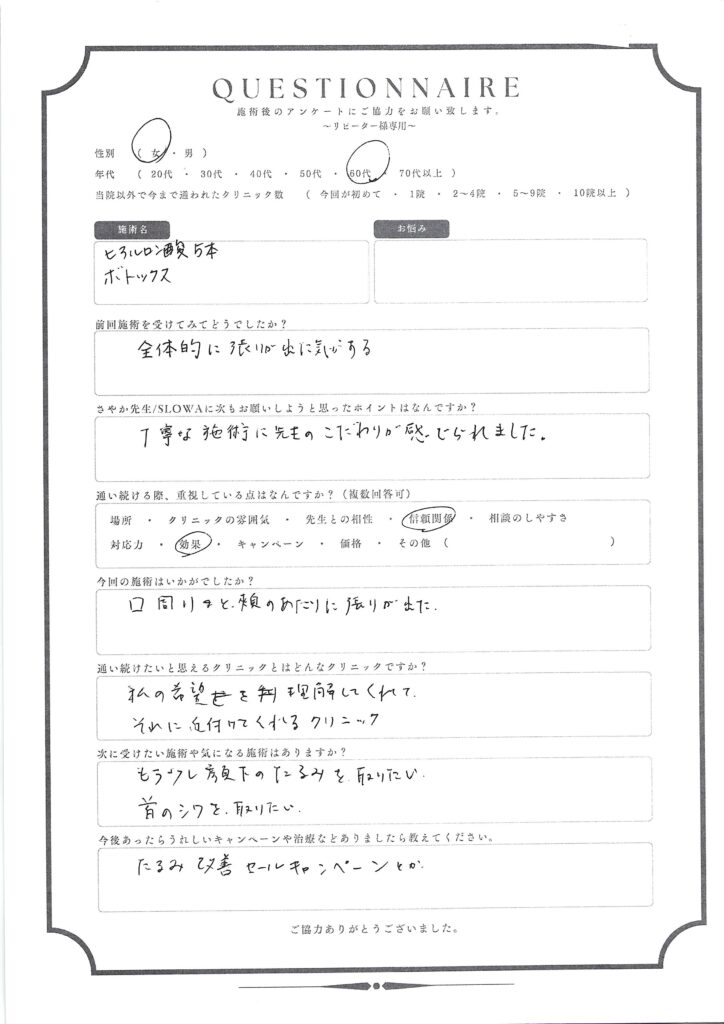 QUESTIONNAIRE
施術後のアンケートにご協力をお願い致します。
～リピーター様専用～
性別 ( 女 ・ 男 )
年代 ( 20代 ・ 30代 ・ 40代 ・ 50代 ・ 60代 ・ 70代以上 )
当院以外で今まで通われたクリニック数 ( 今回が初めて ・ 1院 ・ 2〜4院 ・ 5〜9院 ・ 10院以上 )
施術名 お悩み
ヒアルロン酸5本
ボトックス
前回施術を受けてみてどうでしたか？
全体的に張りが出に気がする
さやか先生/SLOWAに次もお願いしようと思ったポイントはなんですか？
丁寧な施術に先生のこだわりが感じられました。
通い続ける際、重視している点はなんですか？（複数回答可）
場所 ・ クリニックの雰囲気 ・ 先生との相性 ・ 信頼関係 ・ 相談のしやすさ
対応力 ・ 効果 ・ キャンペーン ・ 価格 ・ その他 ( )
今回の施術はいかがでしたか？
口周りと、頬のあたりに張りが出た.
通い続けたいと思えるクリニックとはどんなクリニックですか？
私の希望を理解してくれて、
それに近付けてくれるクリニック
次に受けたい施術や気になる施術はありますか？
もう少し顔下のたるみを、取りたい.
首のシワを、取りたい.
今後あったらうれしいキャンペーンや治療などありましたら教えてください。
たるみ改善セールキャンペーンとか
ご協力ありがとうございました。